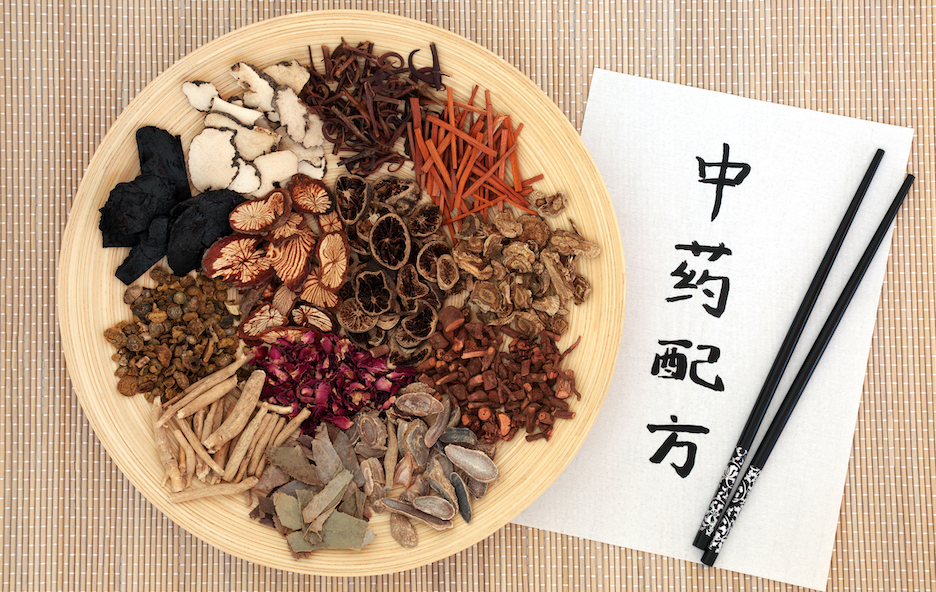 中药配方